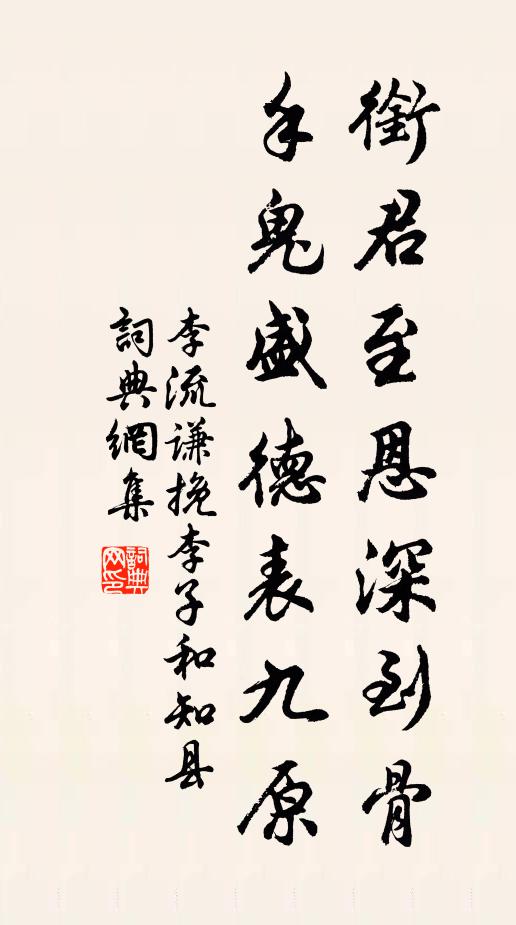 銜君至恩深到骨
鬼盛德表九原
李流謙挽李子和知县
詞典網集
詞典网印